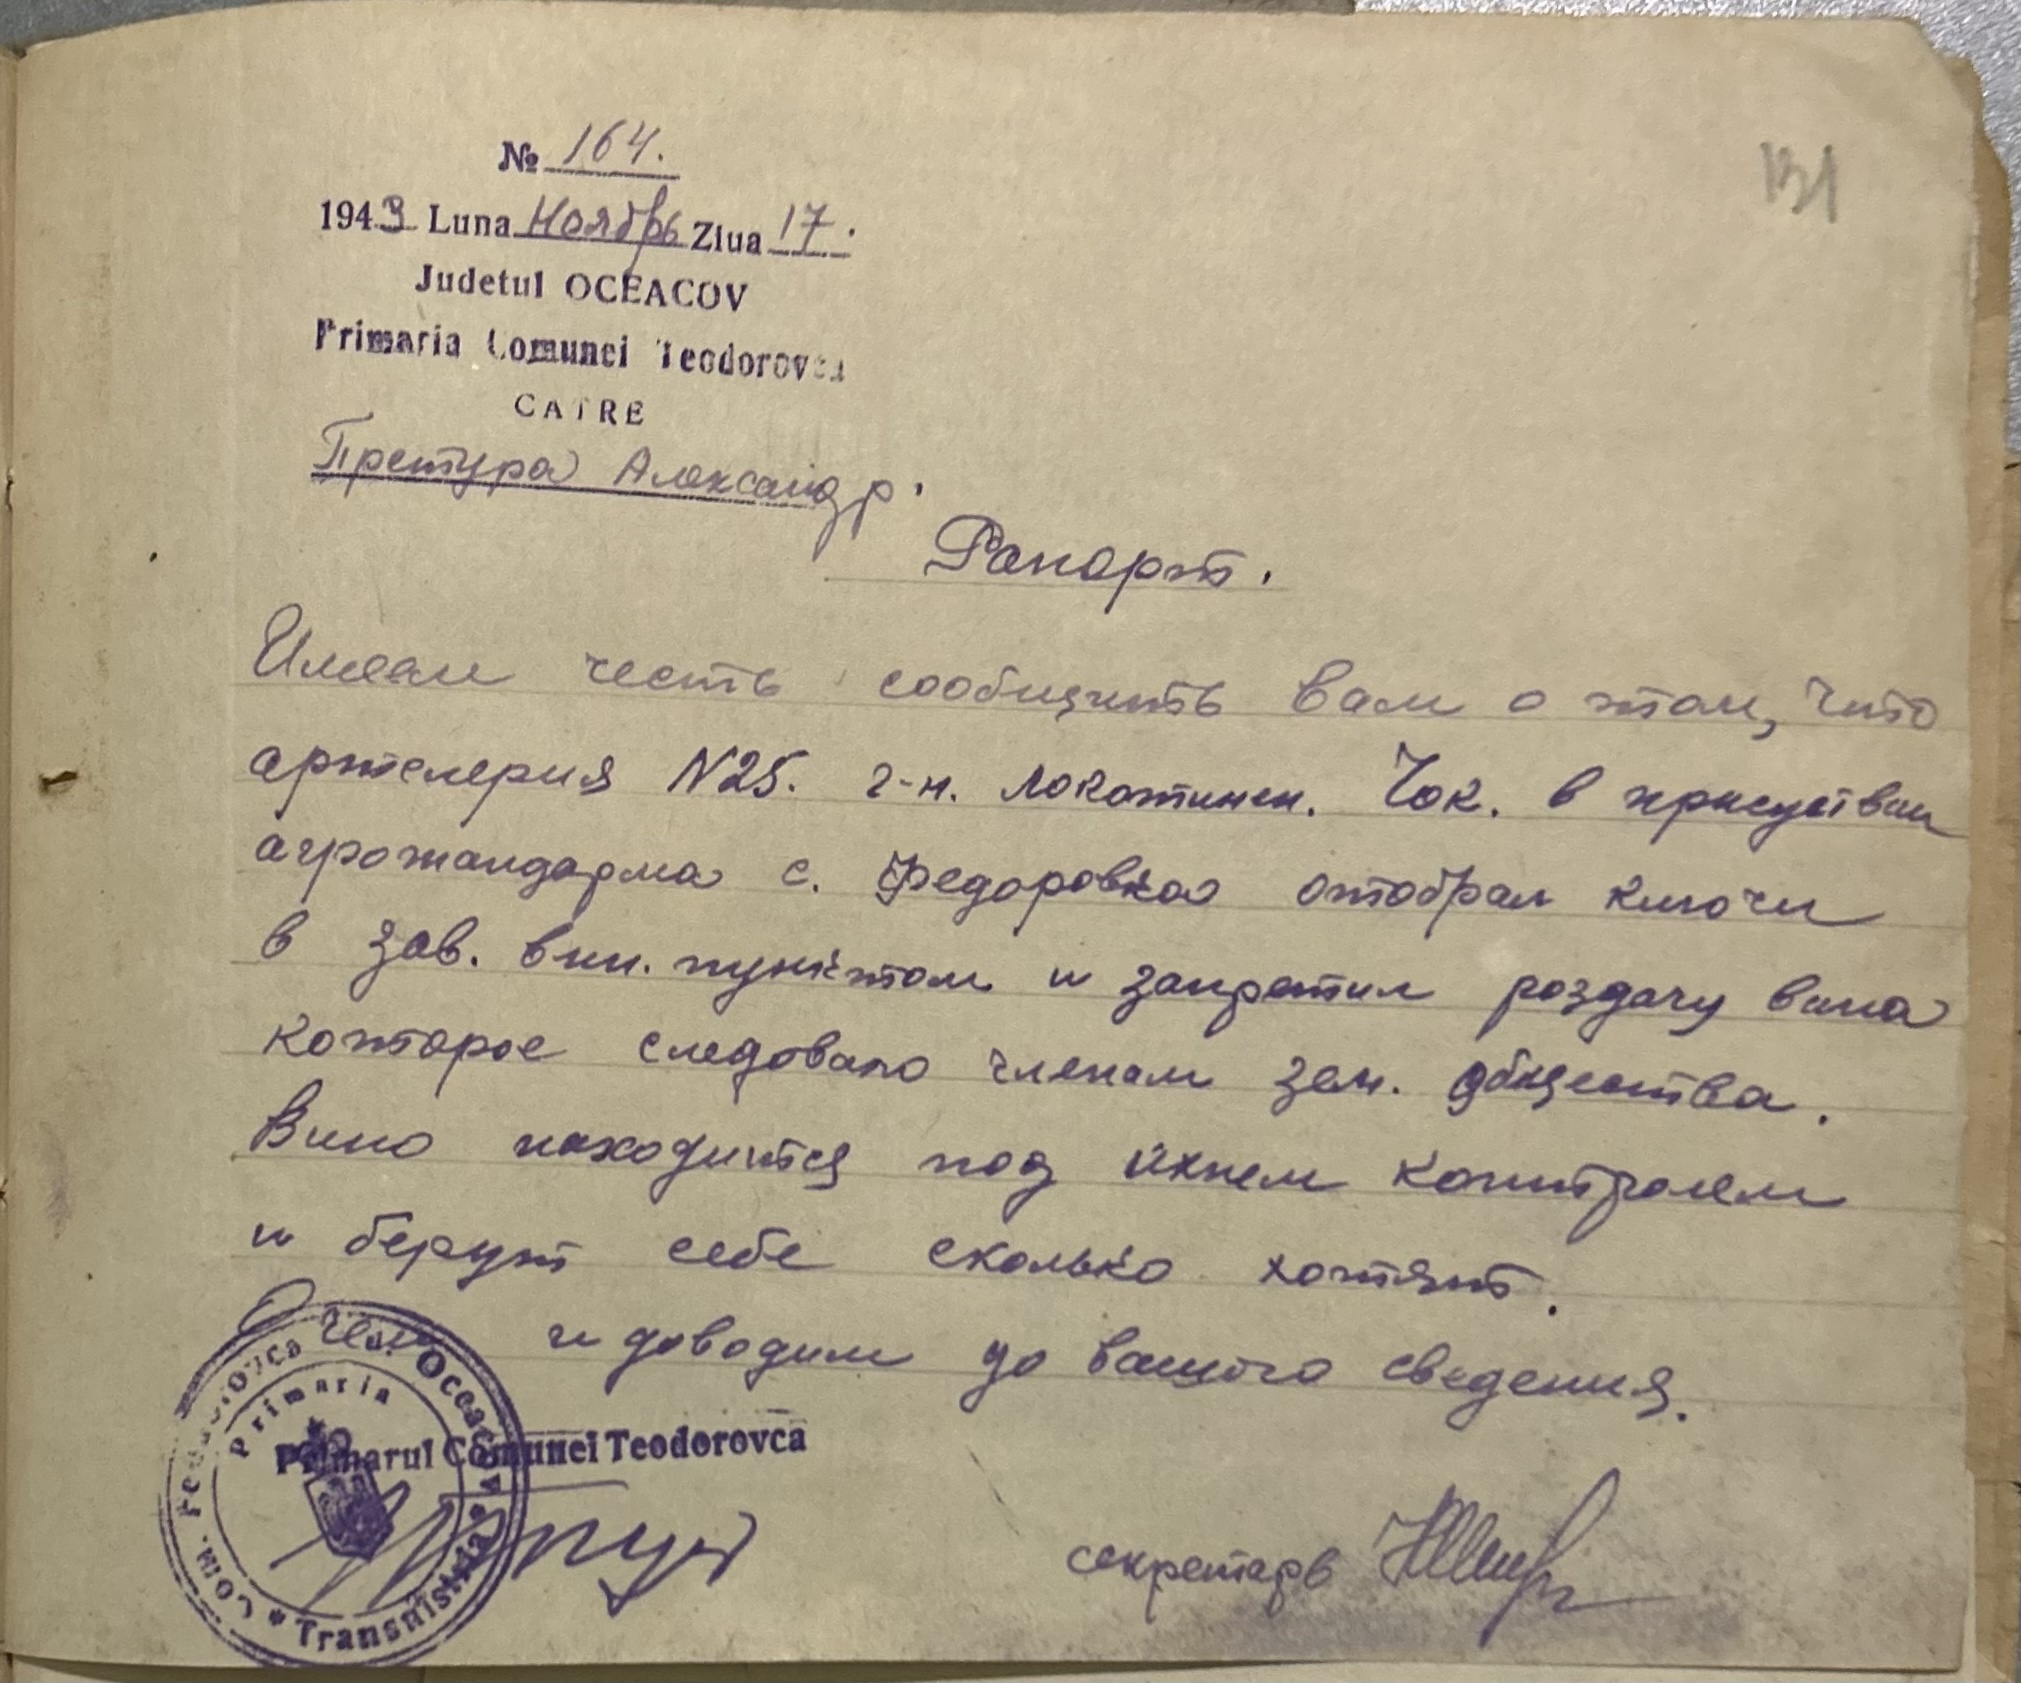 № 164.
131
1943 Luna Ноябрь Ziua 17.
Judetul OCEACOV
Primaria Comunei Teodorovca
CATRE
Претура Александр.
Рапорт.
Имеем честь сообщить вам о том, что
артелерия N25. г-н. Чок. в присуствии
агрожандарма с. Федоровка отобрал ключи
в зав. вин. пунктом и запретил роздачу вина
которое следовало членам зем. общества.
Вино находится под ихнем контролем
и берут себе сколько хотят.
О чем и доводим до вашого сведения.
Primarul Comunei Teodorovca
Com. Feodorovca Jud. Oceacov
Primaria
* Transnistria *
секретарь